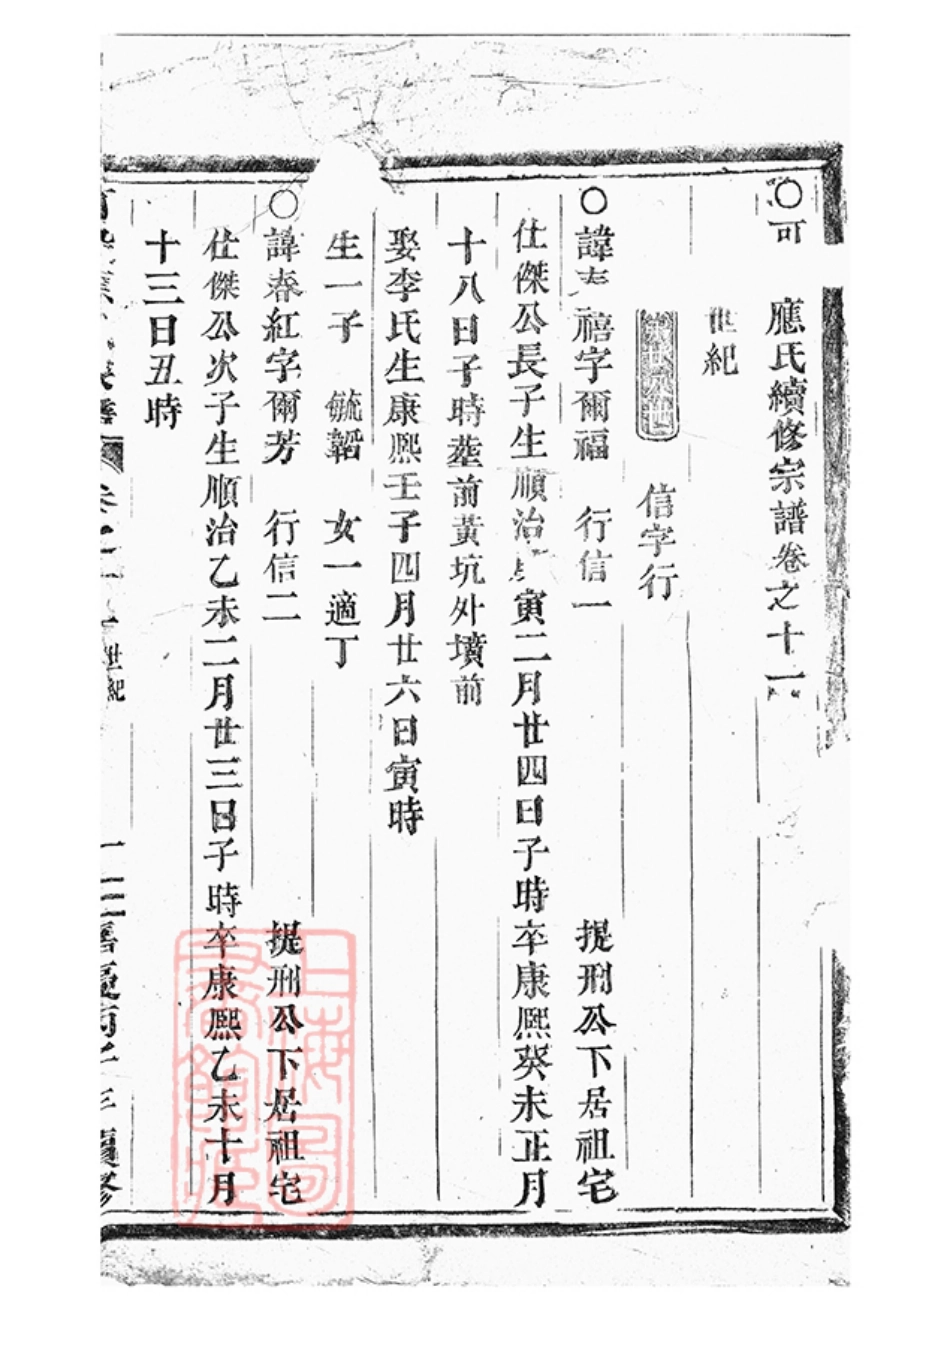 ○可 應氏續修宗譜卷之十一
世紀
信字行
○諱春禧字爾福 行信一 提刑公下居祖宅
仕傑公長子生順治寅二月廿四日子時卒康熙癸未正月
十八日子時塟前黃坑外墳前
娶李氏生康熙壬子四月廿六日寅時
生一子 毓韜 女一適丁
○諱春紅字爾芳 行信二 提刑公下居祖宅
仕傑公次子生順治乙未二月廿三日子時卒康熙乙未十月
十三日丑時
世紀